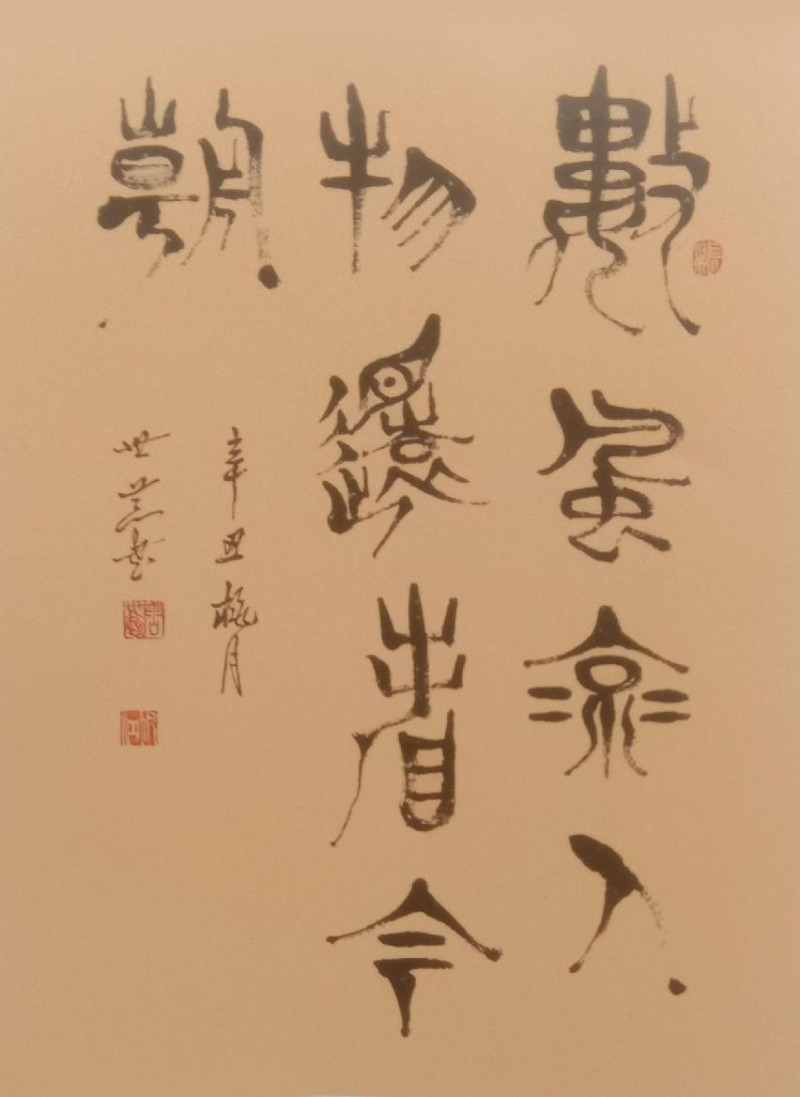 數風流人
物還看今
朝
辛丑桃月
世